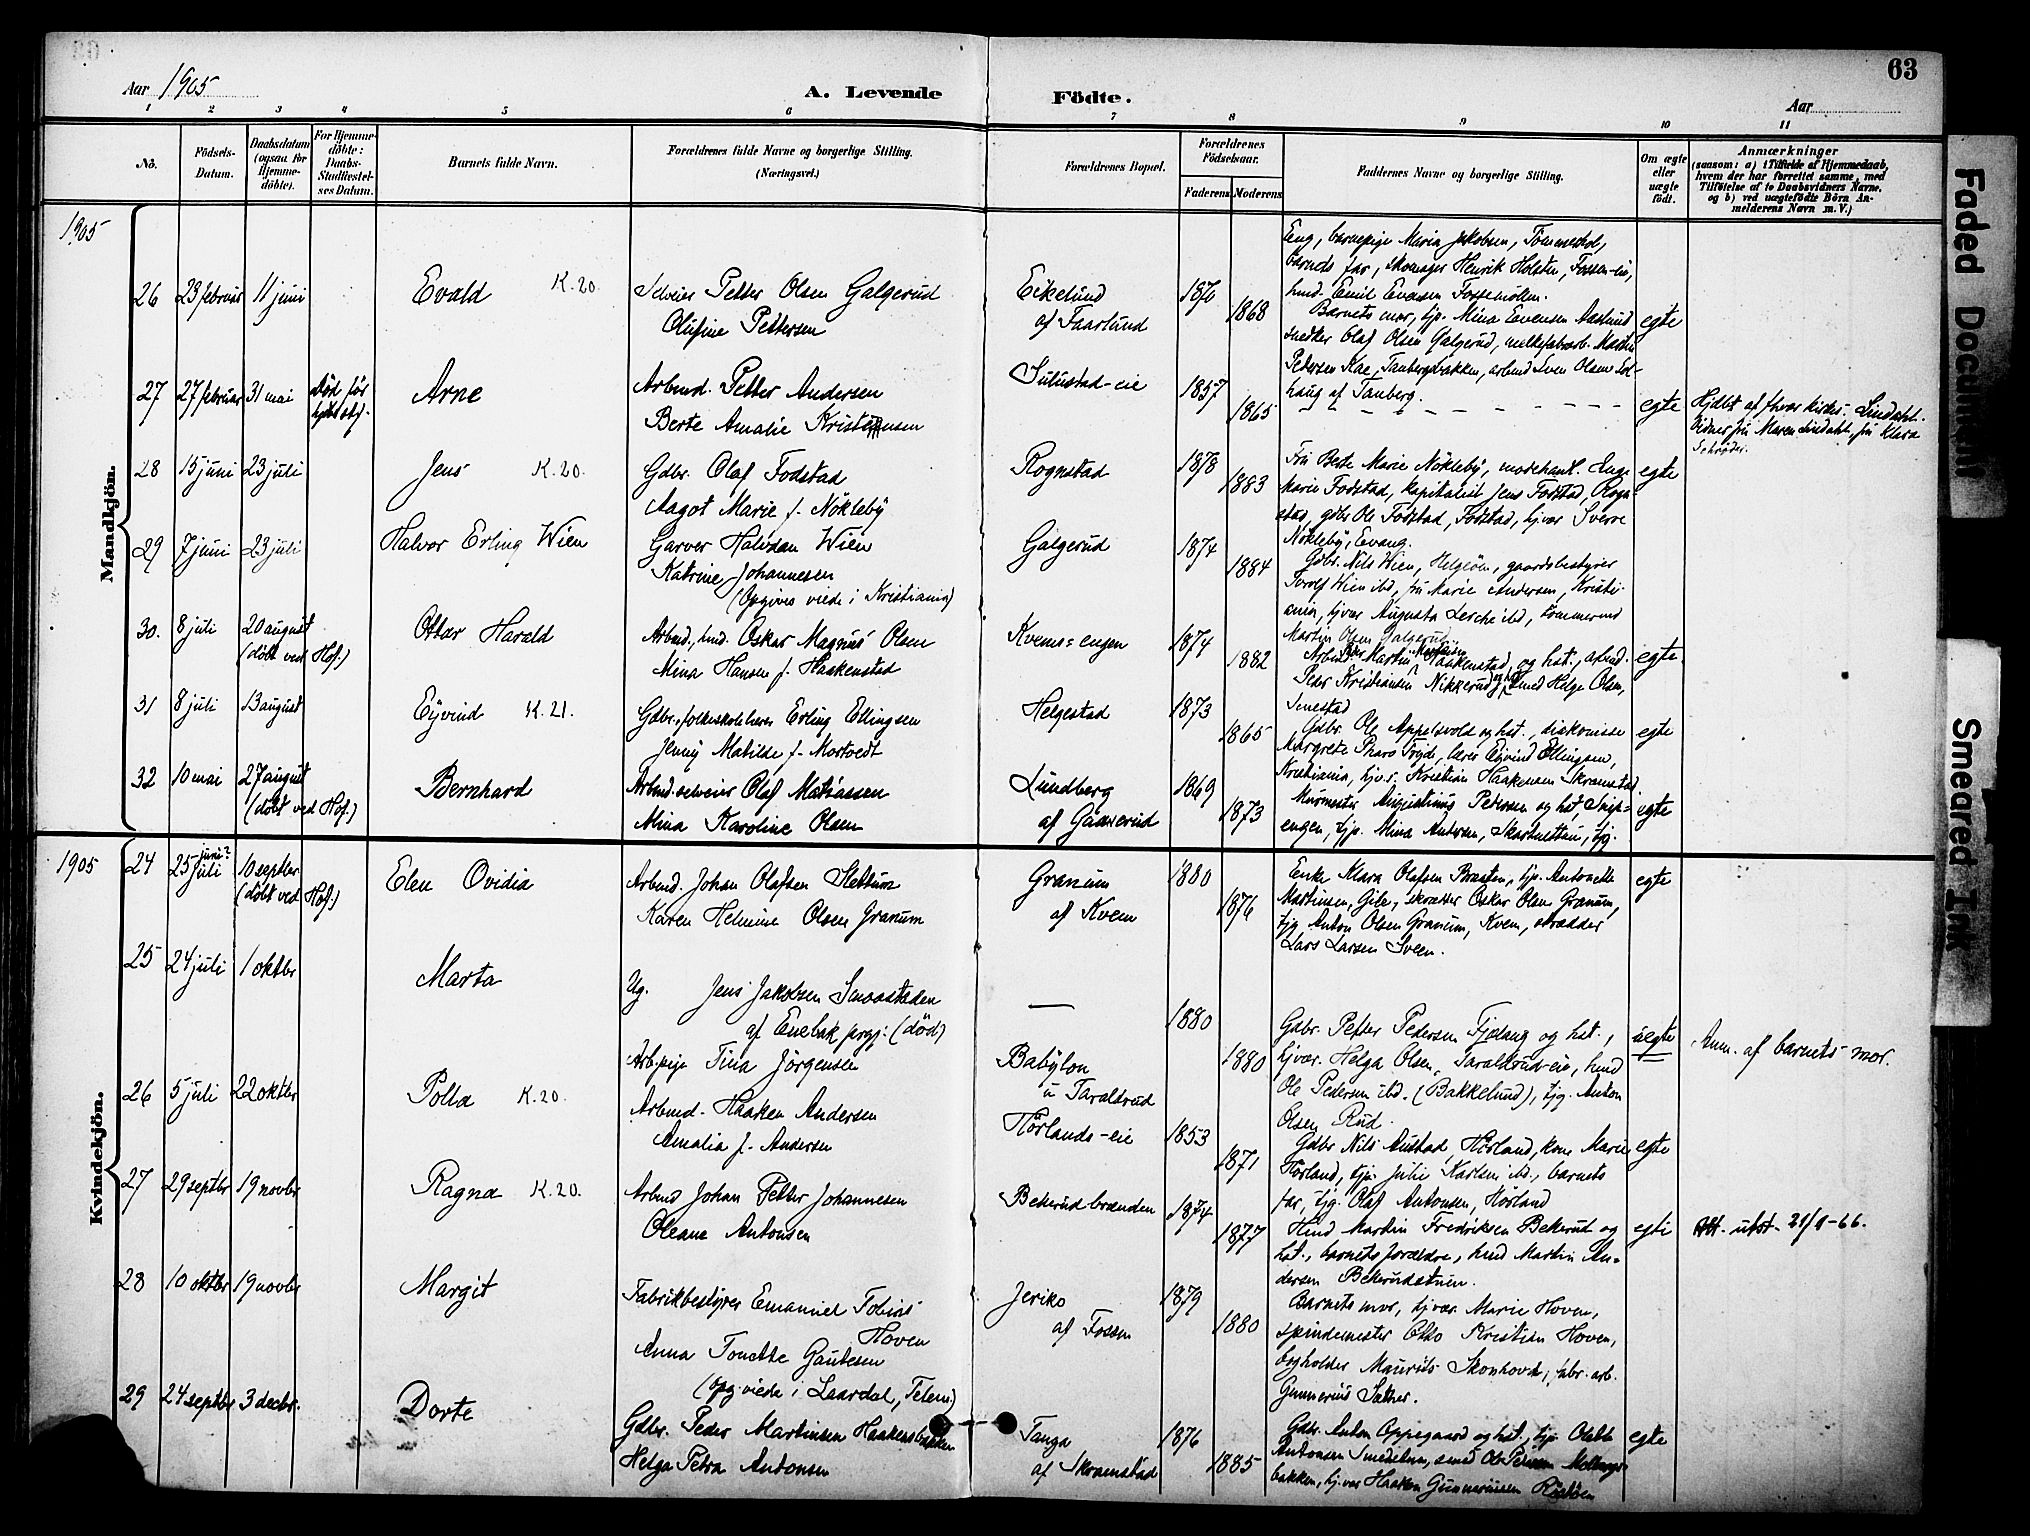 63
Aar 1905
A. Levende
Födte.
Aar
1 2 3 4 5 6 7 8 9 10 11
No.
Födsels-
Datum.
Daabsdatum
(ogsaa for
Hjemme-
döbte).
For Hjemme-
döbte:
Daabs-
Stadfæstel-
ses Datum.
Barnets fulde Navn.
Forældrenes fulde Navne og borgerlige Stilling.
(Næringsvei.)
Forældrenes Bopæl.
Forældrenes
Födselsaar.
Faderens
Moderens
Faddernes Navne og borgerlige Stilling.
Om ægte
eller
uægte
födt.
Anmærkninger
(saasom: a) i Tilfælde af Hjemmedaab,
hvem der har forrettet samme, med
Tilföielse af to Daabsvidners Navne,
og b) ved uægtefödte Börn An-
melderens Navn m. V.)
1905
Mandkjön.
26 23 februar 11 juni Evald K. 20.
Selveier Petter Olsen Galgerud
Olufine Pettersen
Eikelund
af Faarlund
1870
1868
Eng, barnepige Maria Jakobsen, Tömmestol,
barnets far, skomager Henrik Holsten, Fossen-eie,
hmd. Emil Evensen Fossemöllen.
egte
27 27 februar 31 mai Död før
Arne
Arbmd. Petter Andersen
Berte Amalie Kristensen
Sulustad-eie
1857
1865
Barnets mor, tjp. Mina Evensen Aaslund
snedker Olaf Olsen Galgerud, melkefabarb. Martin
Pedersen Kae, Taubergbakken, arbmd Sven Olsen Sol-
haug af Tauberg.
egte
Hjdbt af fhvær kirkes. Lindahl.
Vidner fru Maren Lindahl, fru Klara
Schrøder.
28 15 juni 23 juli Jens K. 20.
Gdbr. Olaf Fodstad
Aagot Marie f. Nökleby
Rognstad
1878
1883
Fru Berte Marie Nökleby, modehand. Inga
Marie Fodstad, kapitalist Jens Fodstad, Rogn-
stad, gdbr Ole Fodstad, Fodstad, hjvær Sverre
Nökleby, Evang.
egte
29 7 juni 23 juli Halvor Erling Wien
Garver Halvdan Wien
Katrine Johannesen
(Opgives viede i Kristiania)
Galgerud
1874
1884
Gdbr. Nils Wien, Helgøen, gaardsbestyrer
Torolf Wien ibd, fru Marie Andersen, Kristi-
ania, hjvær Augusta Lerche ibd, tømmermd
Martin Olsen Galgerud
30. 8 juli 20 august
(döbt ved Hof.)
Ottar Harald
Arbmd, hmd. Oskar Magnus Olsen
Mina Hansen f. Haakenstad
Kvems-engen
1874
1882
Arbmd. Martin Haakenstad og hst., arbmd.
Peder Kristiansen Nikkerud, smed Helge Olsen,
Smestad
egte.
31 8 juli 13 august Eyvind K. 21.
Gdbr., folkeskolelærer Erling Ellingsen
Jenny Matilde f. Mostvedt
Helgestad
1873
1865
Gdbr. Ole Appelsvold og hst., diakonisse
Margrete Pharo Tryde, lærer Eyvind Ellingsen,
Kristiania, hjvs. Kristian Haakensen Skramstad
egte
32 10 mai 27 august
(döbt ved Hof.)
Bernhard
Arbmd. selveier Olaf Matiassen
Mina Karoline Olsen
Lundberg
af Gaaserud
1869
1873
Murmester Augustinus Pedersen og hst, Snip-
engen, tjp. Mina Andersen, Skartlettstuen, tjg.
egte
1905
Kvindekjön.
24 25 juli juni? 10 septbr
(döbt ved Hof.)
Elen Ovidia
Arbmd. Johan Olafsen Slettum
Karen Helmine Olsen Granum
Granum
af Kvem
1880
1876
Enke Klara Olafsen Braaten, tjp. Antonette
Martinsen, Gile, skrædder Oskar Olsen Granum,
tjg Anton Olsen Granum, Kvem, skrædder
Lars Larsen Sveen.
egte
25 24 juli 1 oktbr Marta
Ug. Jens Jakobsen Smaastaden
af Enebak prgj. (död)
Arbpige Tina Jörgensen
Babylon
u Taraldrud
1880
1880
Gdbr. Petter Pedersen Fjelang og hst.,
hjvær. Helga Olsen, Taraldrud-eie, hmd
Ole Pedersen ibd. (Bakkelund), tjg. Anton
Olsen Rud.
uegte
Anm. af barnets mor.
26 5 juli 22 oktbr Polla K. 20.
Arbmd. Haaken Andersen
Amalia f. Andersen
Hörlands-eie
1853
1871
Gdbr Nils Austad, Hörland, kone Marie
Hörland, tjp. Julie Karlsen ibd., barnets
far, tjg. Olaf Antonsen, Hörland
egte
27 29 septbr 19 novbr Ragna K. 20.
Arbmd Johan Petter Johannesen
Oleane Antonsen
Bekerudbraenden
1874
1877
Hmd Martin Fredriksen Bekerud og
hst., barnets forældre, hmd Martin An-
dersen Bekerudstuen.
egte
Att. utst. 21/1-66.
28 10 oktbr 19 novbr Margit
Fabrikbestyrer Emanuel Tobias
Hoven
Anna Tonette Gautesen
(Opg. viede i Laardal, Telem.)
Jeriko
af Fossen
1879
1880
Barnets mor, hjvær Marie Hoven,
spindemester Otto Kristian Hoven,
bogholder Maurits Skonhovd, fabr. arb.
Gunnerius Sather.
29 24 septbr 3 decbr. Dorte
Gdbr. Peder Martinsen Haakensbakken
Helga Petra Antonsen
Tanga
af Skramstad
1876
1885
Gdbr. Anton Oppegaard og hst., tjp. Oletta
Antonsen Smedstuen, smed Ole Persen
bakken, hjvær Haaken Gunneriussen
egte
Faded Document
Smeared Ink